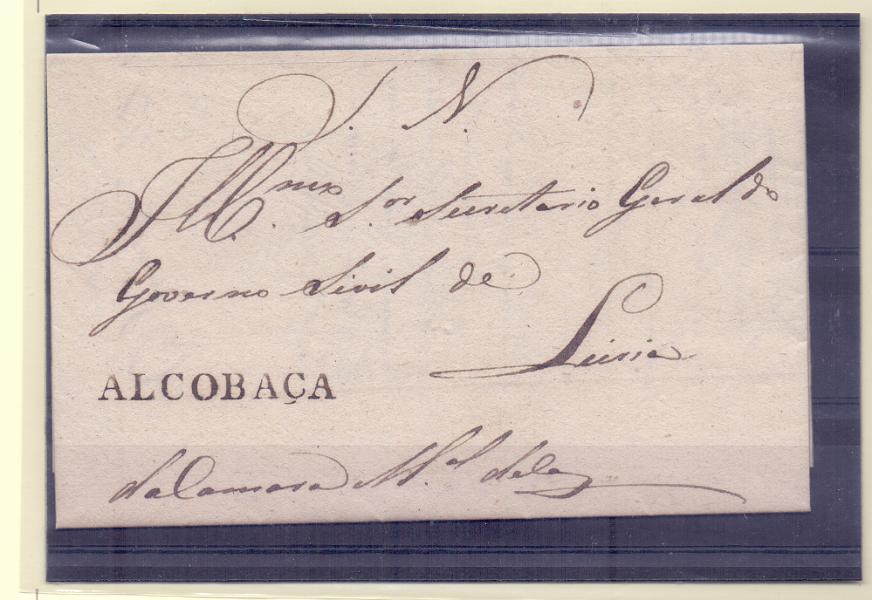 S. N.
Illmo. Sor. Secretario Geral do
Governo Sivil de
Leiria
ALCOBAÇA
da Camara Mal. della